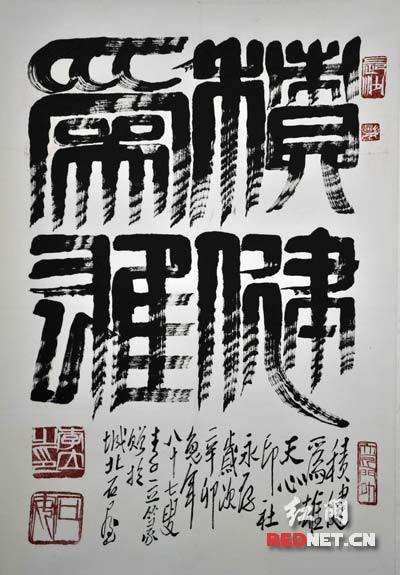 積健
爲雄
積健
爲雄
天心
印社
永存
歲次
辛卯
兔年
八十七叟
李立篆
於
城北石
红网
REDNET.CN